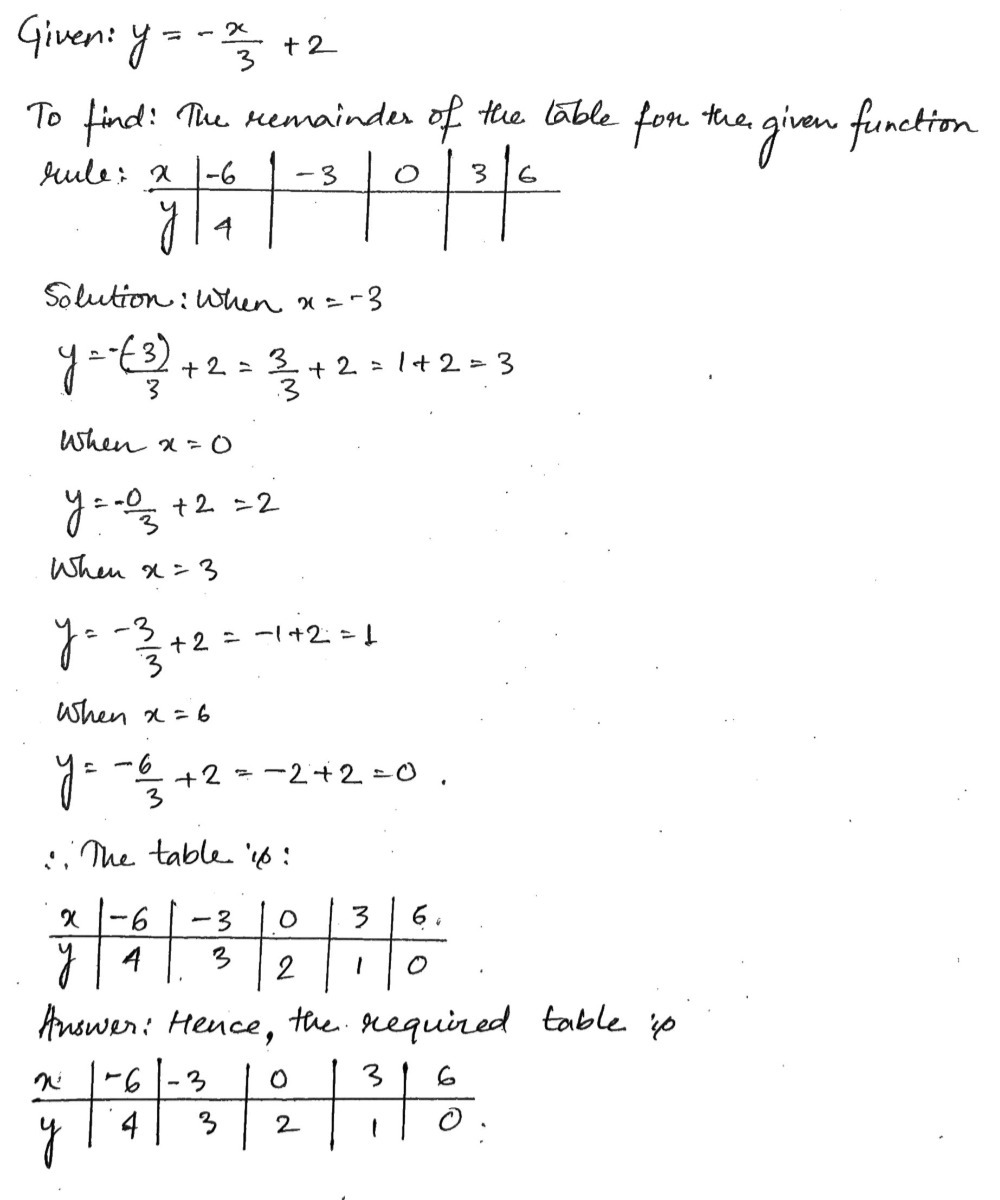 Given: y = -x/3 + 2
To find: The remainder of the table for the given function
rule: x | -6 | -3 | 0 | 3 | 6
y | 4 | | | |
Solution: When x = -3
y = -(-3)/3 + 2 = 3/3 + 2 = 1 + 2 = 3
When x = 0
y = -0/3 + 2 = 2
When x = 3
y = -3/3 + 2 = -1 + 2 = 1
When x = 6
y = -6/3 + 2 = -2 + 2 = 0.
∴ The table is:
x | -6 | -3 | 0 | 3 | 6
y | 4 | 3 | 2 | 1 | 0
Answer: Hence, the required table is
x | -6 | -3 | 0 | 3 | 6
y | 4 | 3 | 2 | 1 | 0